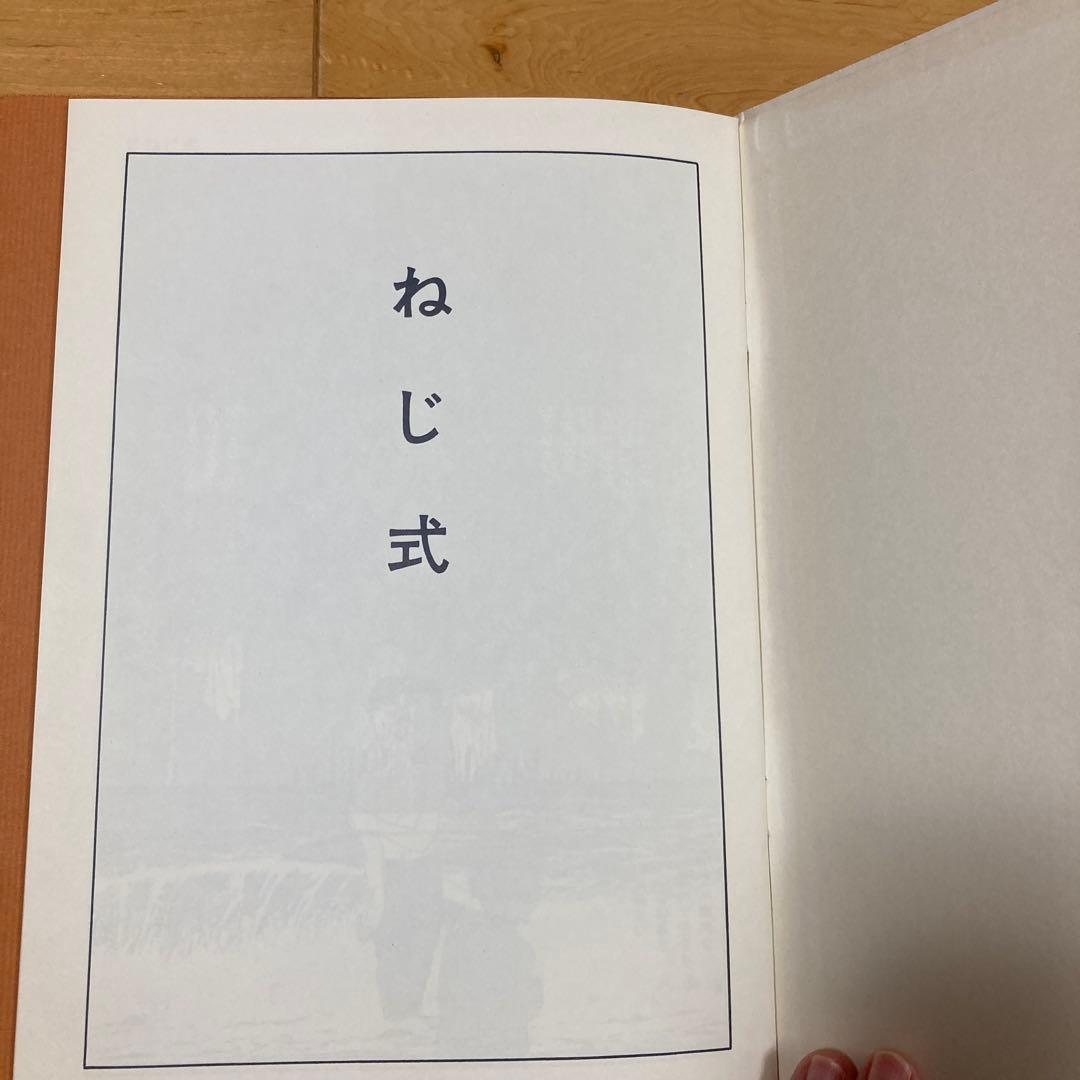 ねじ式